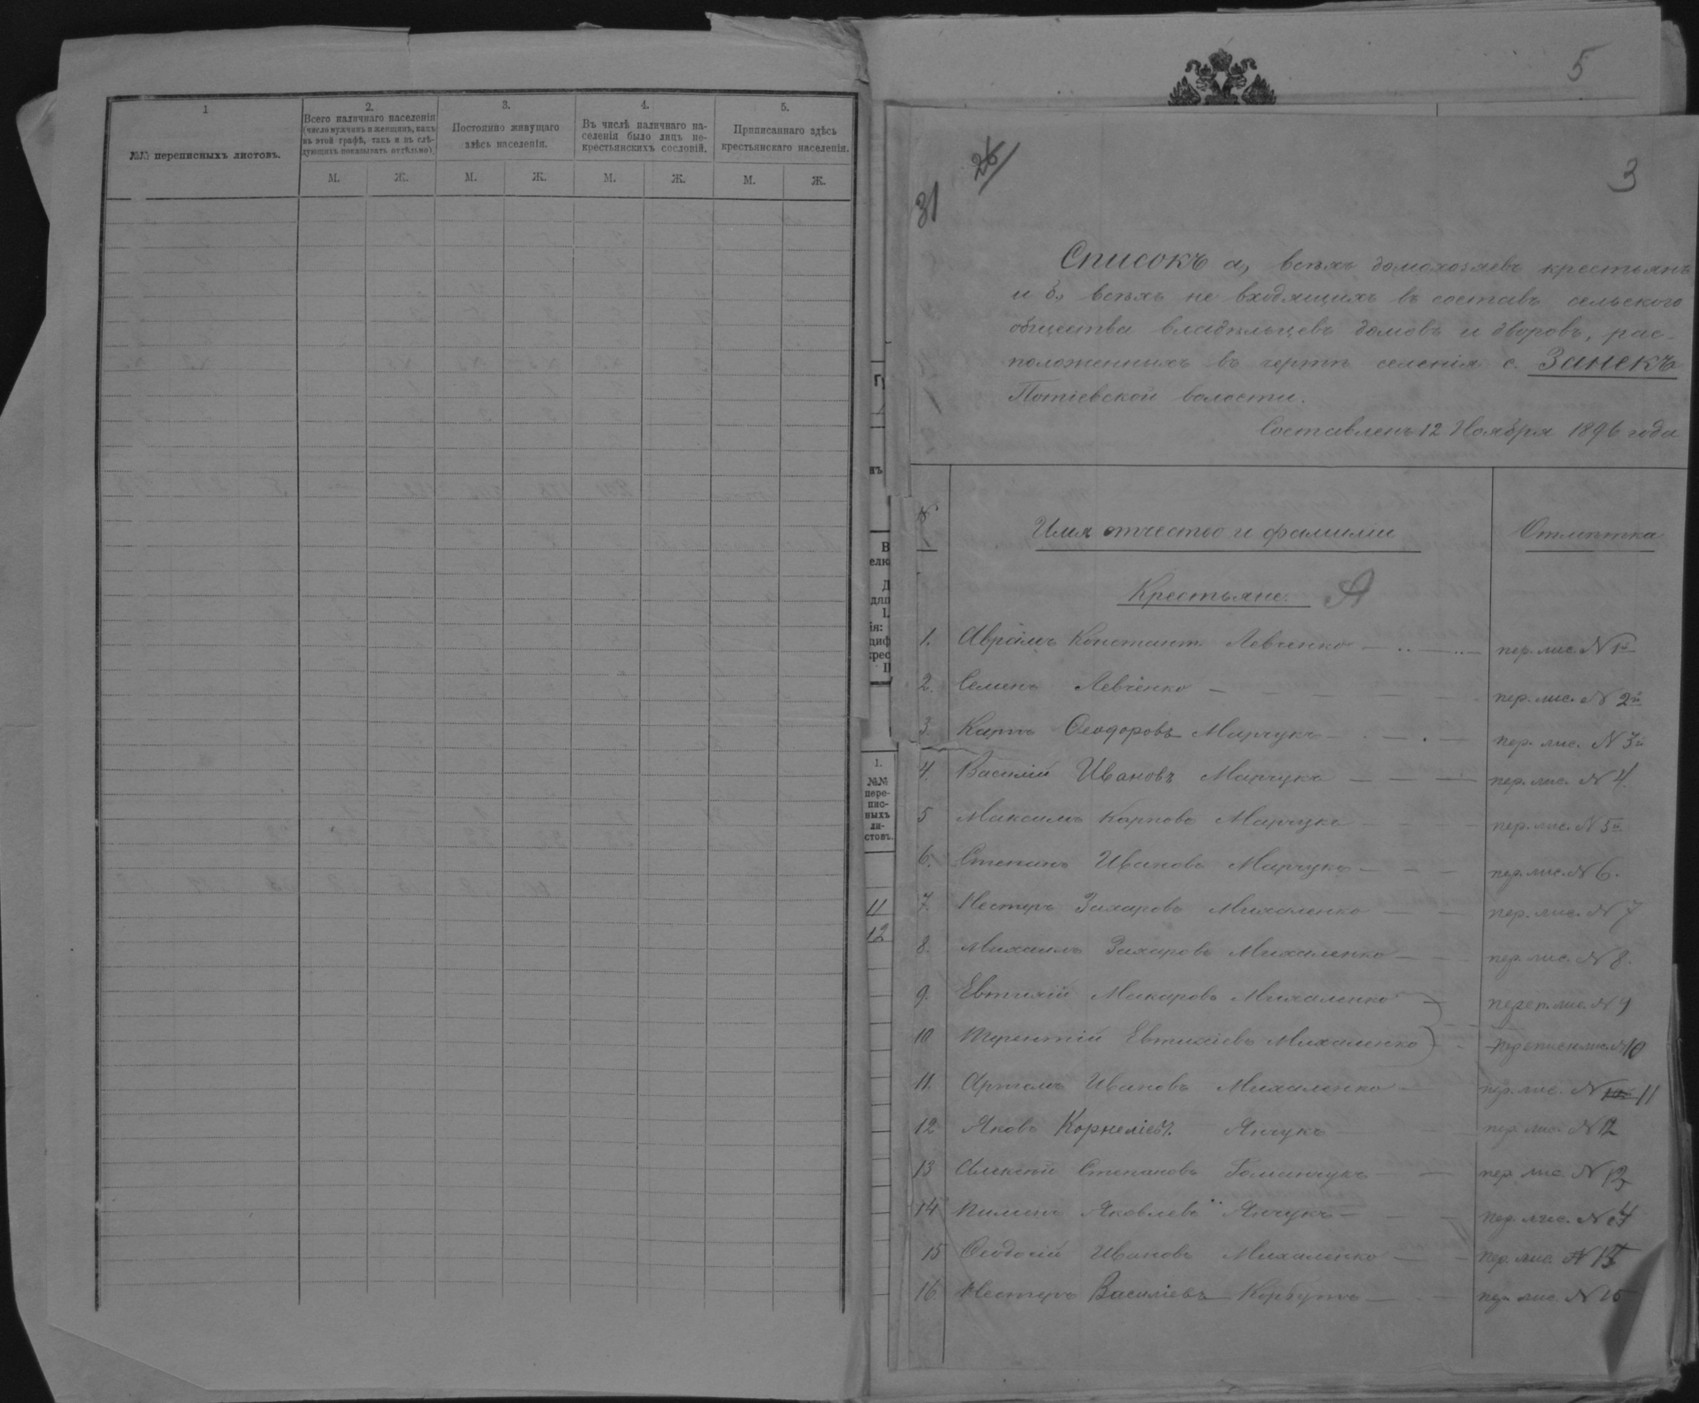 1
№№ переписныхъ листовъ.
2.
Всего наличнаго населенія
(число мужчинъ и женщинъ, какъ
въ этой графѣ, такъ и въ слѣ-
дующихъ показывать отдѣльно)
3.
Постоянно живущаго
здѣсь населенія.
4.
Въ числѣ наличнаго на-
селенія было лицъ не-
крестьянскихъ сословій.
5.
Приписаннаго здѣсь
крестьянскаго населенія.
М. Ж. М. Ж. М. Ж. М. Ж.
1.
№№
пере-
пис-
ныхъ
ли-
стовъ.
11
12
5
3
26
31
Списокъ а, всѣхъ домохозяевъ крестьянъ
и б, всѣхъ не входящихъ въ составъ сельскаго
общества владѣльцевъ домовъ и дворовъ, рас-
положенныхъ въ чертѣ селенія с. Занекъ
Потіевской волости.
Составленъ 12 Ноября 1896 года
№ Имя отчество и фамилии Отмѣтка
Крестьяне. А
1. Аврамъ Констант. Левченко пер. лис. № 1й
2. Семенъ Левченко пер. лис. № 2й
3. Карпъ Ѳеодоровъ Марчукъ пер. лис. № 3й
4. Василій Ивановъ Марчукъ пер. лис. № 4.
5 Максимъ Карповъ Марчукъ пер. лис. № 5й
6. Степанъ Ивановъ Марчукъ пер. лис. № 6.
7. Несторъ Захаровъ Михаленко пер. лис. № 7
8. Михаилъ Захаровъ Михаленко пер. лис. № 8.
9. Евтихій Макаровъ Михаленко переп. лис. № 9
10 Терентій Евтихіевъ Михаленко № 10
11. Артемъ Ивановъ Михаленко пер. лис. № 11
12 Яковъ Корнеліевъ Янчукъ пер. лис. № 12
13 Алексѣй Степановъ пер. лис. № 13
14 Пименъ Яковлевъ Янчукъ пер. лис. № 14
15 Ѳеодосій Ивановъ Михаленко пер. лис. № 15
16 Несторъ Василіевъ Корбутъ пер. лис. № 16